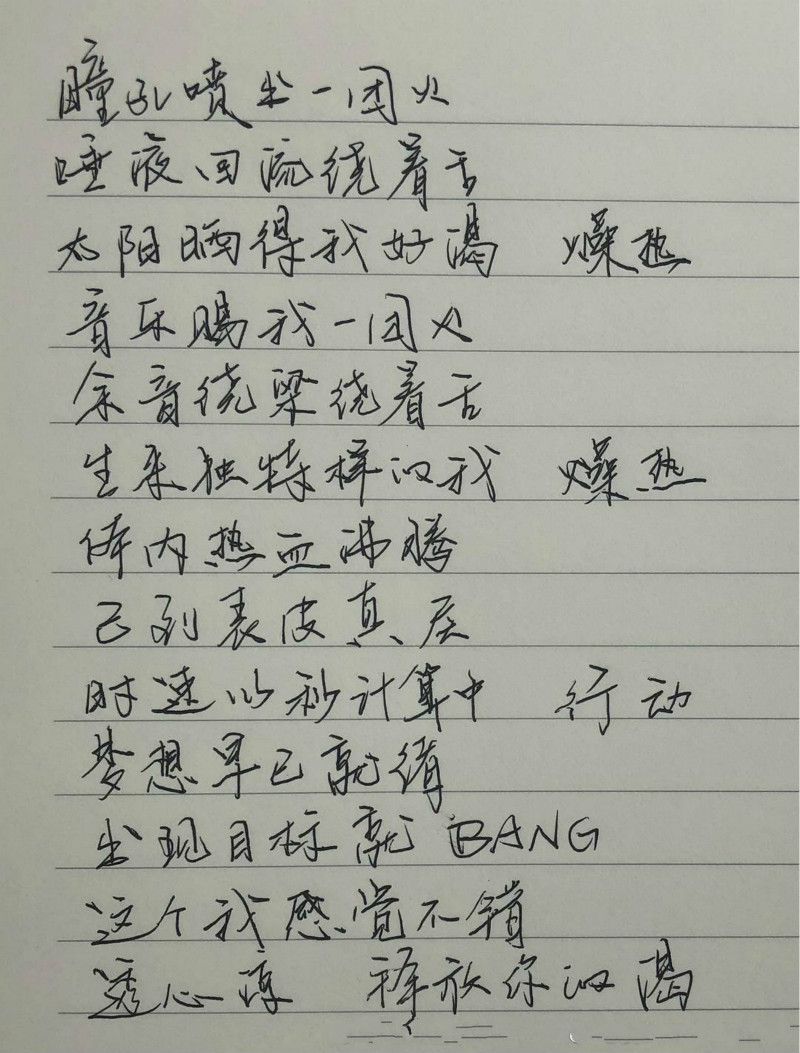 瞳孔喷出一团火
唾液回流绕着舌
太阳晒得我好渴 燥热
音乐赐我一团火
余音绕梁绕着舌
生来独特样的我 燥热
体内热血沸腾
已到表皮真层
时速以秒计算中 行动
梦想早已就绪
出现目标就 BANG
这个我感觉不错
透心凉 释放你的渴